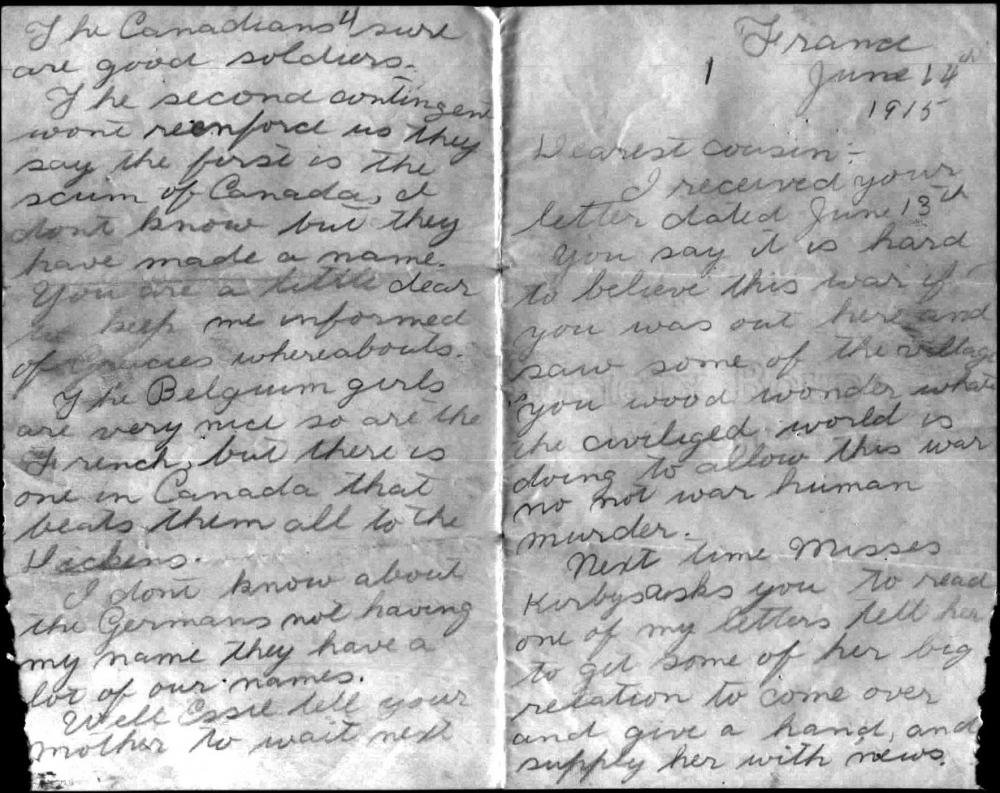 France
1
June 14th
1915
Dearest cousin:-
I received your
letter dated June 13th
You say it is hard
to believe this war if
you was out here and
saw some of the village
you wood wonder what
the civiliged world is
doing to allow this war
no not war human
murder.
Next time Misses
Kirbys asks you to read
one of my letters tell her
to get some of her big
relation to come over
and give a hand, and
supply her with news.
4
The Canadians sure
are good soldiers.
The second contingent
wont reenforce us they
say the first is the
scum of Canada, I
dont know but they
have made a name.
You are a little dear
to keep me informed
of Gracies whereabouts.
The Belgium girls
are very nice so are the
French, but there is
one in Canada that
beats them all to the
Dickens.
I dont know about
the Germans not having
my name they have a
lot of our names.
Well Essie tell your
mother to wait next